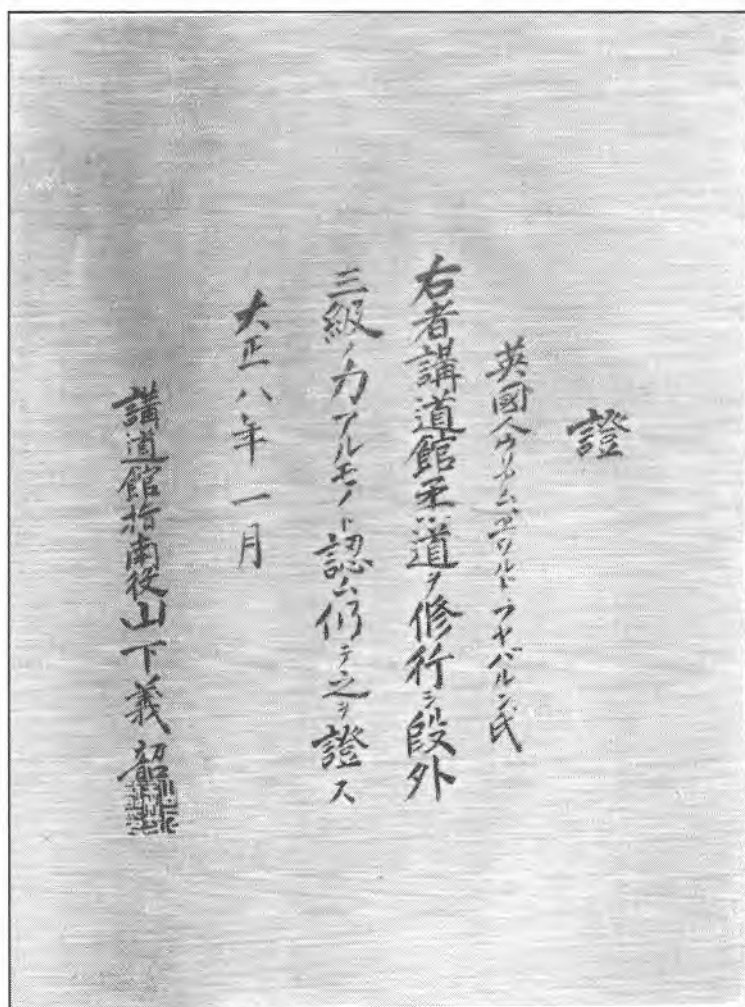 證
英國人ウリヤム、エワルド・フヤバルン氏
右者講道館柔道ヲ修行シ段外
三級ノ力アルモノト認ム仍テ之ヲ證ス
大正八年一月
講道館指南役山下義韶